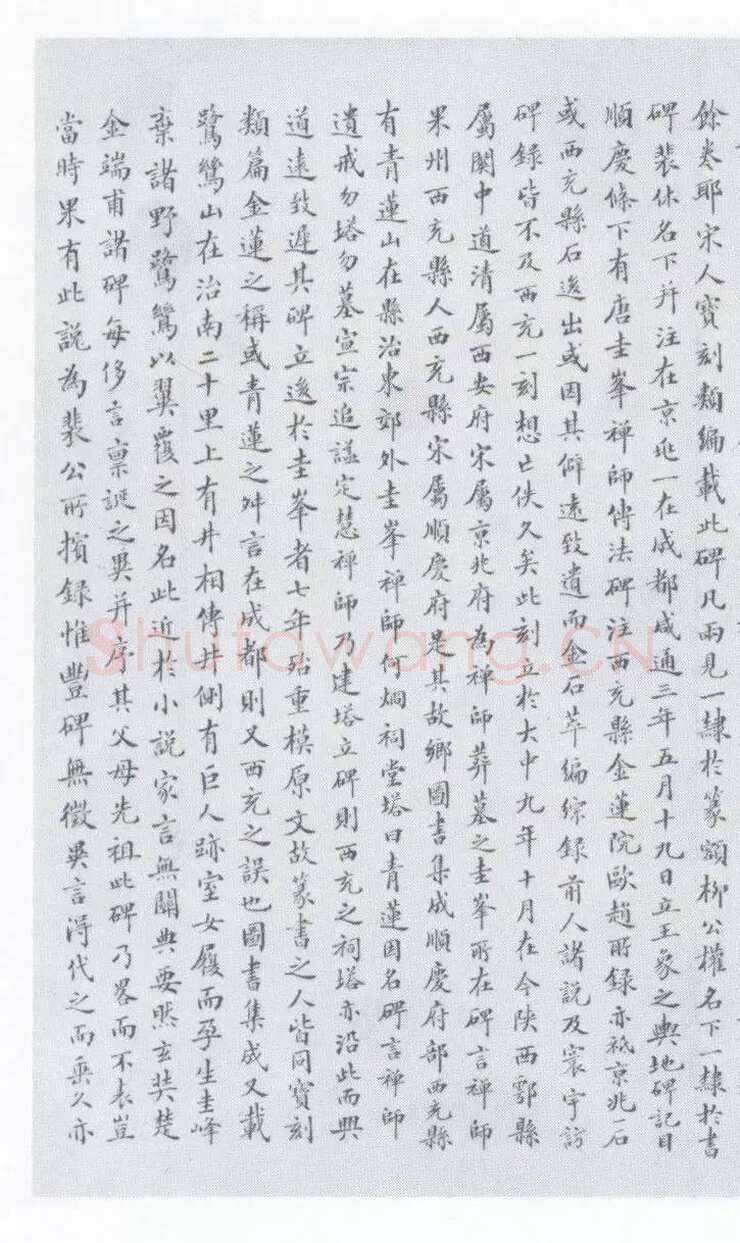 餘煑耶宋人寶刻類編載此碑凡兩見一隷於篆額柳公權名下一隷於書
碑裴休名下并注在京兆一在成都咸通三年五月十九日立王象之輿地碑記目
順慶條下有唐圭峯禪師傳法碑注西充縣金蓮院歐趙所錄亦祗京兆一石
或西充縣石後出或因其僻遠致遺而金石萃編綜錄前人諸說及寰宇訪
碑錄皆不及西充一刻想亡佚久矣此刻立於大中九年十月在今陝西鄠縣
屬關中道清屬西安府宋屬京兆府為禪師葬墓之圭峯所在碑言禪師
果州西充縣人西充縣宋屬順慶府是其故鄉圖書集成順慶府部西充縣
有青蓮山在縣治東郊外圭峯禪師何烱祠堂塔曰青蓮因名碑言禪師
遺戒勿塔勿墓宣宗追諡定慧禪師乃建塔立碑則西充之祠塔亦沿此而興
道遠致遲其碑立後於圭峯者七年殆重模原文故篆書之人皆同寶刻
類篇金蓮之稱或青蓮之舛言在成都則又西充之誤也圖書集成又載
鷺鷥山在治南二十里上有井相傳井側有巨人跡室女履而孕生圭峰
棄諸野鷺鷥以翼覆之因名此近於小說家言無關典要然玄奘楚
金端甫諸碑每侈言稟誕之異并序其父母先祖此碑乃畧而不表豈
當時果有此說為裴公所擯錄惟豐碑無徵異言得代之而乘久亦
Shufawang.CN